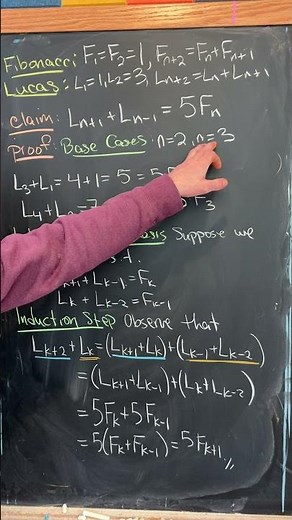 Fibonacci: F₁=F₂=1, Fₙ₊₂=Fₙ+Fₙ₊₁
Lucas: L₁=1, L₂=3, Lₙ₊₂=Lₙ+Lₙ₊₁
Claim: Lₙ₊₁+Lₙ₋₁=5Fₙ
Proof: Base Cases: n=2, n=3
L₃+L₁=4+1=5=5
L₄+L =7 F₃
Suppose we
s.t.
ₖ₊₁+Lₖ₋₁=Fₖ
Lₖ+Lₖ₋₂=Fₖ₋₁
Induction Step Observe that
Lₖ₊₂+Lₖ=(Lₖ₊₁+Lₖ)+(Lₖ₋₁+Lₖ₋₂)
=(Lₖ₊₁+Lₖ₋₁)+(Lₖ+Lₖ₋₂)
=5Fₖ+5Fₖ₋₁
=5(Fₖ+Fₖ₋₁)=5Fₖ₊₁